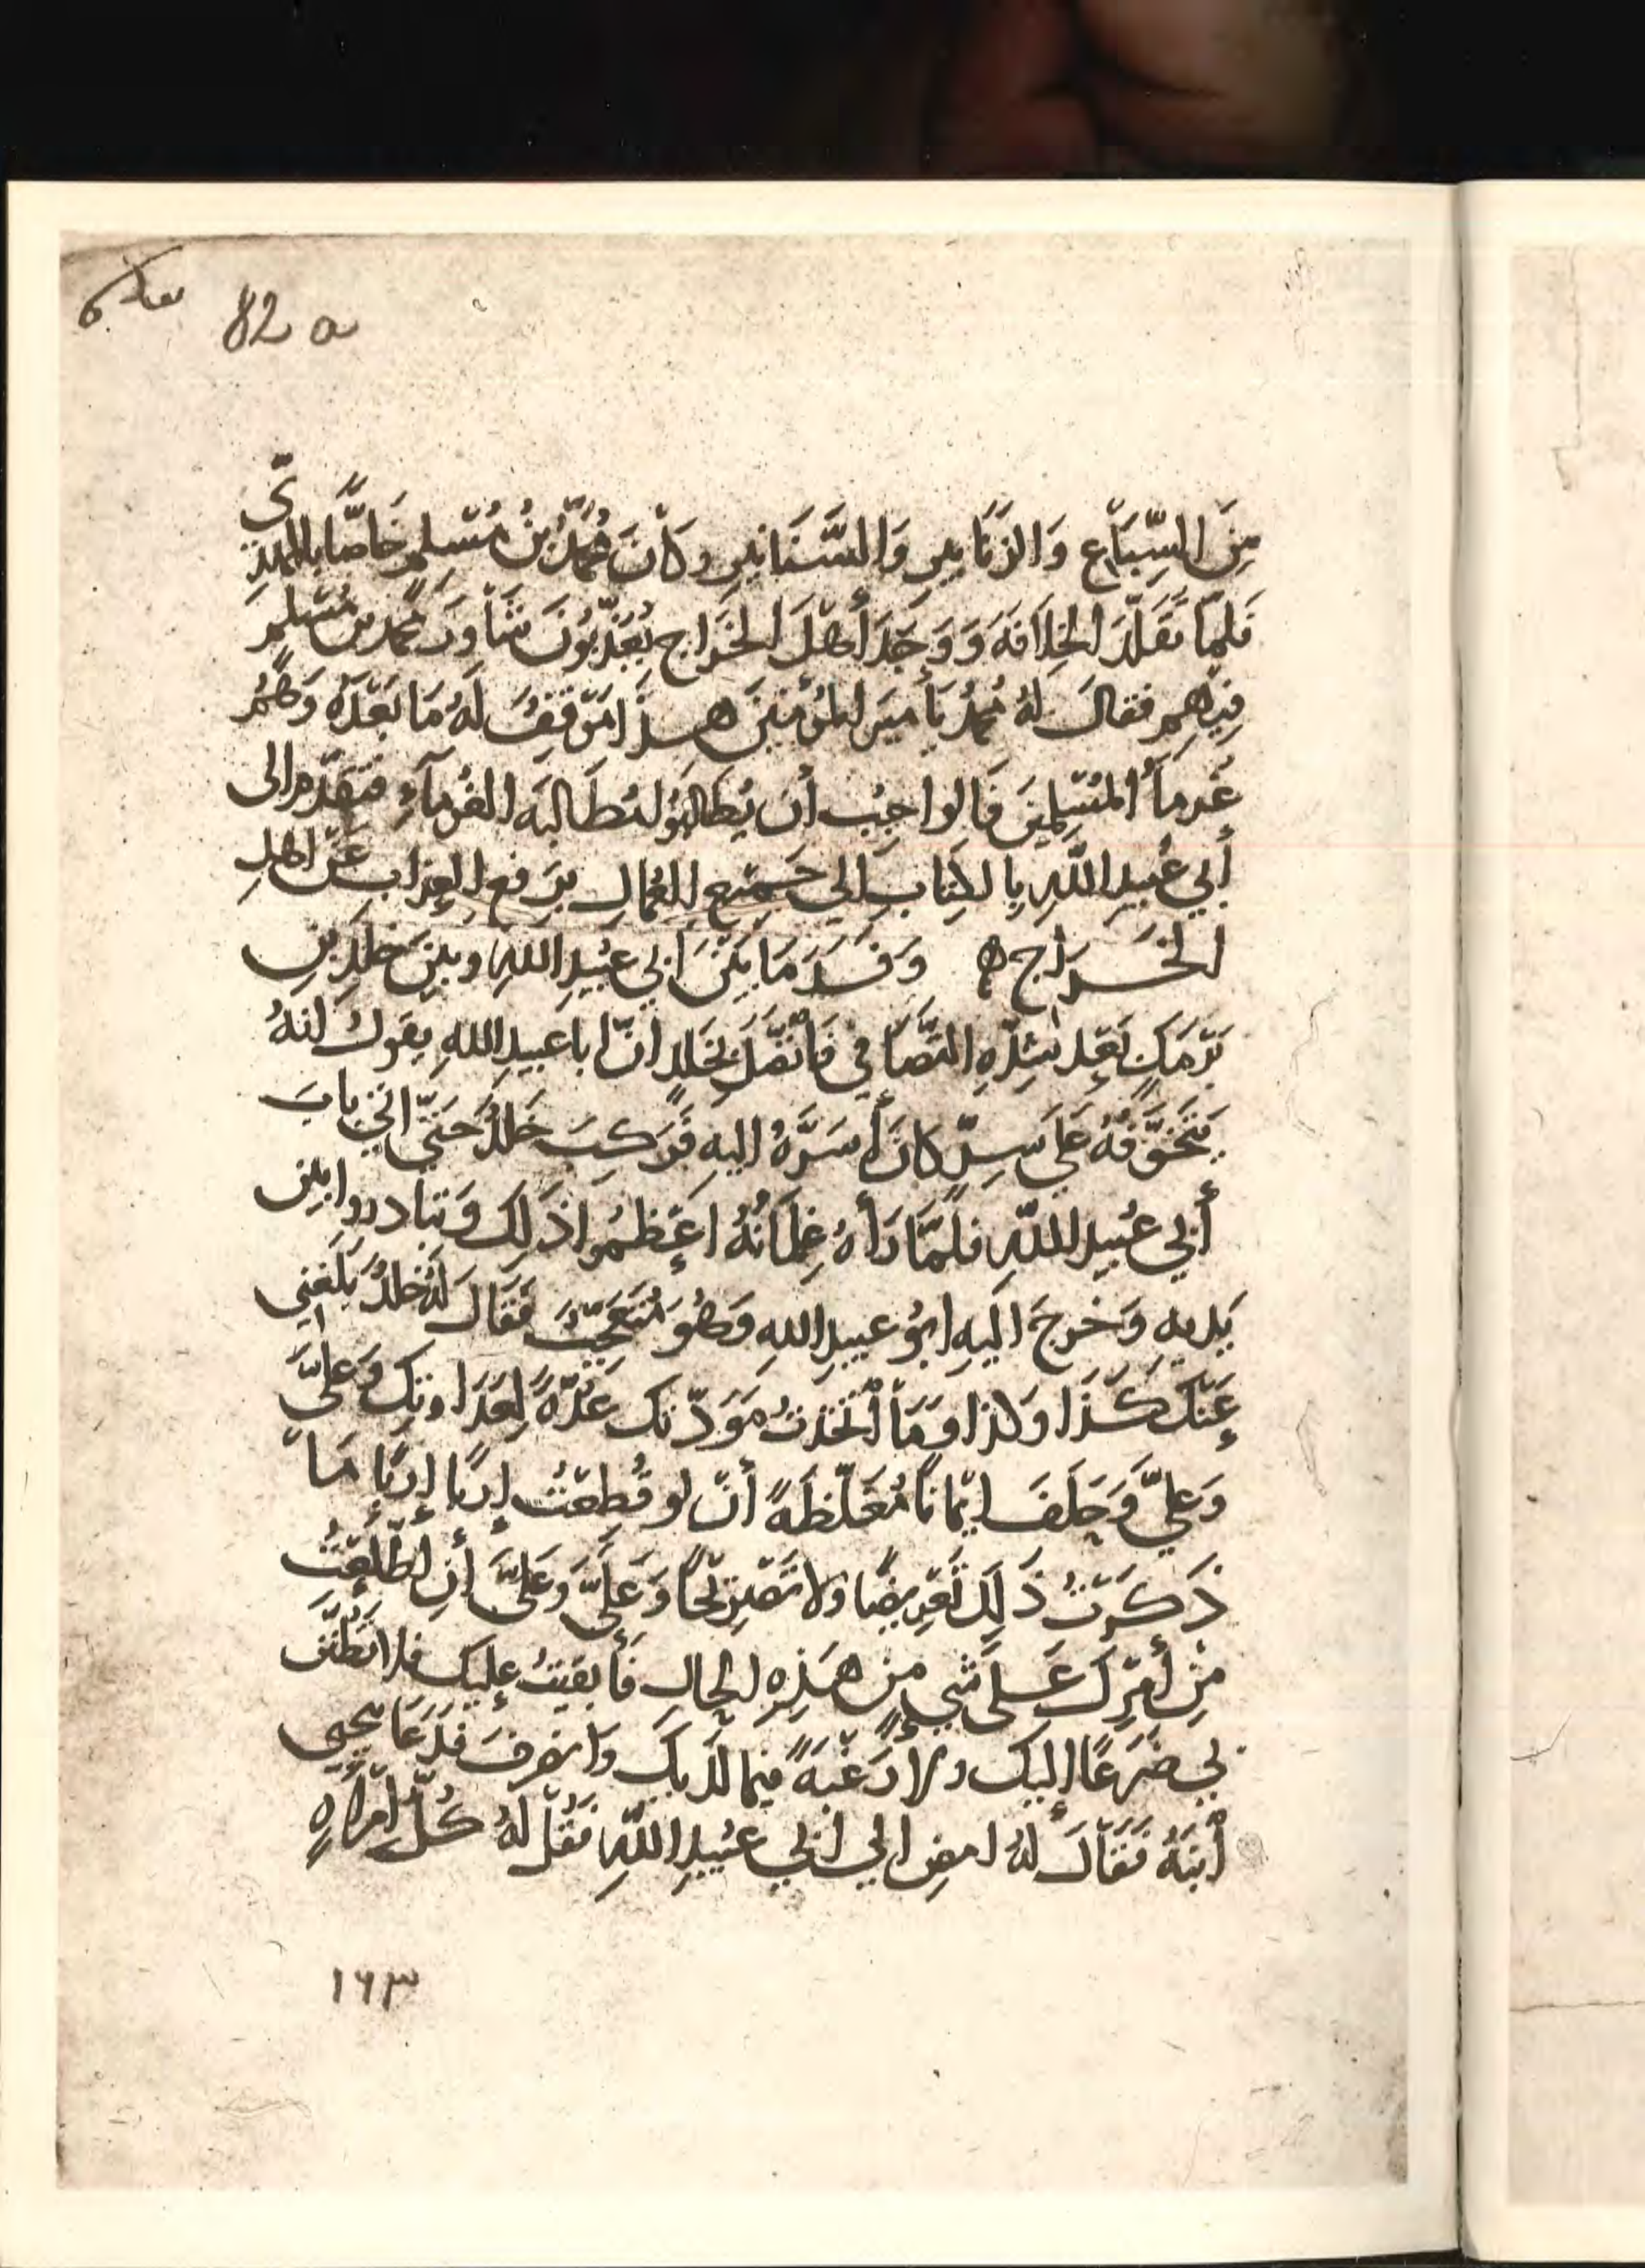 82 a
مِنَ السِّبَاعِ وَالزَنَابيرِ وَالسَّنَانيرِ وكَانَ مُحَمَّدُ بْنُ مُسْلِمٍ خَاصًّا بالمهديّ
فَلمّا تَقَلّدَ الخِلَافَةَ وَوَجَدَ أَهْلَ الخَرَاجِ يُعَذّبُونَ شَاوَرَ مُحمد بن مُسْلم
فِيهم فقالَ لهُ مُحمدٌ يَأميرَ المؤمنِينَ هذَا مَوْقِفٌ لَهُ مَا بَعْدَهُ وَهُمْ
غُرمَآءُ المُسْلِمينَ فَالواجِبُ أن يُطَالَبُوا مُطَالبَة الغُرمآءِ فتقدّم الى
أَبي عُبيدِ اللّهِ بِالكِتَابِ الي جَميع العُمالِ بِرَفعِ العذابِ عَنْ اهلِ
الخَرَاج ه وَفَسَدَ مَا بَيْنَ أبي عُبيدِ اللهِ وبينَ خلدِ بنِ
بَرْمَكٍ بَعْد شِدّةِ التَّصَافي فَاتّصَلَ بخَلدٍ انّ ابا عبيدِ اللهِ يقولُ انهُ
يَتَخوَّفُهُ عَلَي سِرٍّ كانَ أَسَرَّهُ اليهِ فَرَكِبَ خَلدٌ حَتّي اتي بابَ
أَبي عُبيدِ اللّهِ فلمَّا رَأهُ غِلمَانُهُ اعْظَمُوا ذَلِكَ وَتبادروا بين
يَديه وَخَرجَ اليهِ ابُو عبيدِ اللهِ وَهُوَ مُتَعَجّبٌ فَقَالَ لهُ خلدٌ بَلَغني
عَنْكَ كَذَا وكذا ومَا اتَّخَذتُ مَوَدّتكَ عُدّةً لِعَدَاوتِكَ وَعليَّ
وَعليَّ وَحَلَفَ ايْمانًا مُغَلّظَةً أن لو قُطِعْتُ إربًا إربًا مَا
ذَكَرْتُ ذَلِكَ تَعْرِيضًا ولا تَصْرِيحًا وَعَليَّ وَعَليَّ أَنِ اطّلَعْتُ
مِنْ أَمْرِكَ عَلَى شَيٍ منْ هَذِهِ الحالِ فأبقَيْتُ عليكَ فلا تَظُنّنّ
بي ضَرَعًا إليكَ ولا رَغْبَةً فيما لدَيكَ وَانصرفَ فَدَعَا بيحيي
أبنَهُ فَقَالَ لهُ امضِ الي ابي عُبيدِ اللّهِ فَقُل لَهُ كُلّ امْرَاهٍ
١٦٣